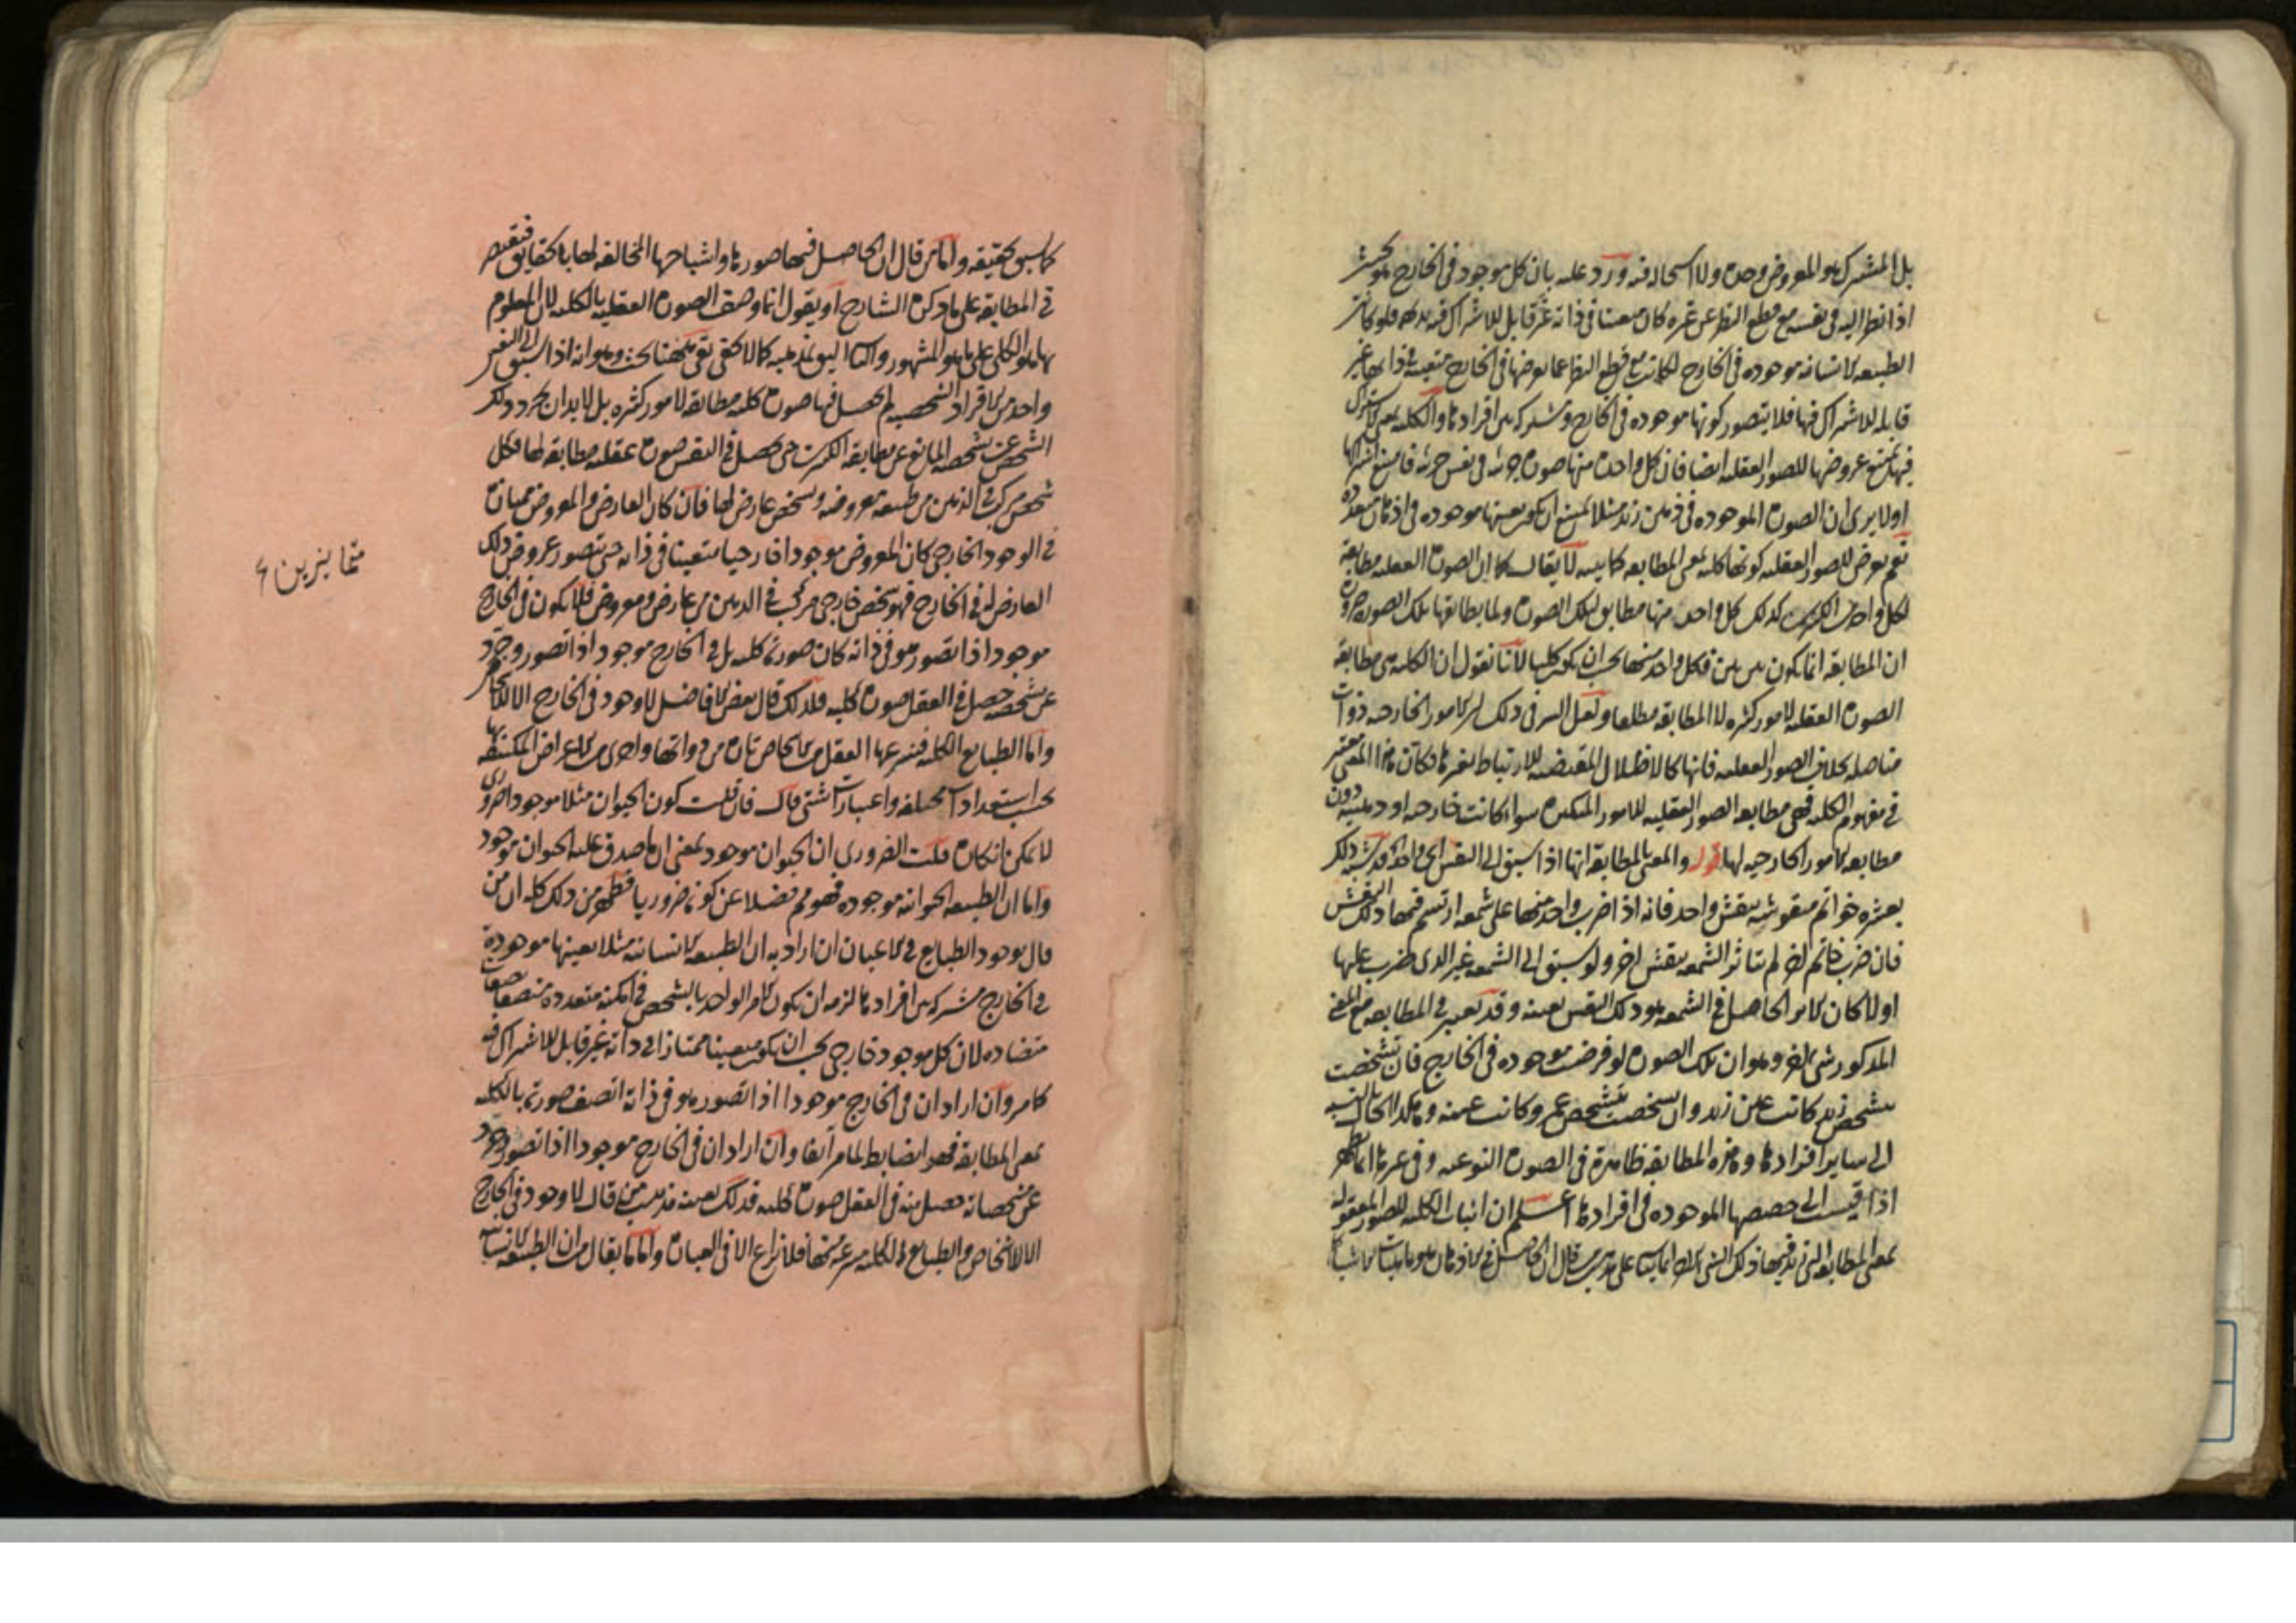 بل المشترك هو المعروض وحده ولا استحالة فيه ورد عليه بان كل موجود في الخارج هو بحيث
اذا نظر اليه في نفسه مع قطع النظر عن غيره كان متعينا في ذاته غير قابل للاشتراك فيه بديهة فلو كانت
الطبيعة الانسانية موجودة في الخارج لكانت مع قطع النظر عما يعرضها في الخارج متعينة في ذاتها غير
قابلة للاشتراك فيها فلا يتصور كونها موجودة في الخارج ومشتركة بين افرادها والكلية بمعنى الاشتراك
فيها يمتنع عروضها للصور العقلية ايضا فان كل واحدة منها صورة جزئية في نفس جزئية فامتنع اشتراكها
اولا يرى ان الصورة الموجودة في ذهن زيد مثلا يمتنع ان يكون بعينها موجودة في اذهان متعددة
نعم يعرض للصور العقلية كونها كلية بمعنى المطابقة كما بينه لا يقال كما ان الصورة العقلية مطابقة
لكل واحد من الكثيرين كذلك كل واحد منها مطابق لتلك الصورة ولما يطابقها تلك الصورة ضرورة
ان المطابقة انما يكون بين بين فكل واحد منها يجب ان يكون كليا لانا نقول ان الكلية هي مطابقة
الصورة العقلية لامور كثيرة لا المطابقة مطلقا ولعل السر في ذلك ان الامور الخارجية ذوات
متاصلة بخلاف الصور العقلية فانها كالاظلال المقتضية للارتباط بغيرها فكان هذا المعنى معتبر
في مفهوم الكلية فهي مطابقة الصور العقلية للامور المتكثرة سواء كانت خارجية او ذهنية دون
مطابقة الامور الخارجية لها قوله والمعنى بالمطابقة انها اذا سبق الى النفس اي واحد قد شبه ذلك
بعشرة خواتم منقوشة بنقش واحد فانه اذا ضرب واحد منها على شمعة ارتسم فيها ذلك النقش
فان ضرب خاتم اخر لم يتاثر الشمعة بنقش اخر ولو سبق الى الشمعة غير الذي ضرب عليها
اولا كان الاثر الحاصل في الشمعة هو ذلك النقش بعينه وقد يعتبر في المطابقة مع المعنى
المذكور شي اخر وهو ان تلك الصورة لو فرضت موجودة في الخارج فان تشخصت
بتشخص زيد كانت عين زيد وان تشخصت بتشخص عمرو كانت عينه وهكذا الحال بالنسبة
الى ساير افرادها وهذه المطابقة ظاهرة في الصورة النوعية وفي غيرها انما يظهر
اذا قيست الى حصصها الموجودة في افرادها اعلم ان اثبات الكلية للصور المعقولة
بمعنى المطابقة التي قد فيها ذلك الشي الاخر انما يتاتى على مذهب من قال ان الحاصل في الاذهان هو ماهيات الاشياء
كما سبق تحقيقه واما من قال ان الحاصل فيها صورها واشباحها المخالفة لها بالحقايق فيقتصر
في المطابقة على ما ذكره الشارح او يقول انما وصف الصورة العقلية بالكلية لان المعلوم
بها هو الكلي على ما هو المشهور والتاليق بمذهبه كما لا يخفى بقي ههنا بحث وهو انه اذا سبق الى النفس
واحد من الافراد الشخصية لم يحصل فيها صورة كلية مطابقة لامور كثيرة بل لابد ان يجرد ذلك
الشخص عن تشخصه المانع عن مطابقة الكثرة حتى يحصل في النفس صورة عقلية مطابقة لها فكل
شخص مركب في الذهن من طبيعة معروضة وتشخص عارض لها فان كان العارض والمعروض متمايزين
في الوجود الخارجي كان المعروض موجودا خارجيا متعينا في ذاته حتى يتصور عروض ذلك
العارض له في الخارج فهو شخص خارجي مركب في الذهن من عارض ومعروض فلا يكون في الخارج
موجود اذا تصور هو في ذاته كان صورته كلية بل في الخارج موجود اذا تصور وجرد
عن تشخصه حصل في العقل صورة كلية فلذلك قال بعض الافاضل لا وجود في الخارج الا للاشخاص
واما الطبايع الكلية فينتزعها العقل من الاشخاص تارة من ذواتها واخرى من الاعراض المكتنفة بها
بحسب استعدادات مختلفة واعتبارات شتى قال فان قلت كون الحيوان مثلا موجودا ضروري
لا يمكن انكاره قلت الضروري ان الحيوان موجود بمعنى ان ما صدق عليه الحيوان موجود
واما ان الطبيعة الحيوانية موجودة فهو مم فضلا عن كونه ضروريا فظهر من ذلك كله ان من
قال بوجود الطبايع في الاعيان ان اراد به ان الطبيعة الانسانية مثلا بعينها موجودة
في الخارج مشتركة بين افرادها لزمه ان يكون الامر الواحد بالشخص في امكنة متعددة متصفا بصفات
متضادة لان كل موجود خارجي يجب ان يكون متعينا ممتازا في ذاته غير قابل للاشتراك فيه
كما مر وان اراد ان في الخارج موجودا اذا تصور هو في ذاته اتصف صورته بالكلية
بمعنى المطابقة فهو ايضا بط لما مر آنفا وان اراد ان في الخارج موجودا اذا تصور وجرد
عن مشخصاته حصل منه في العقل صورة كلية فذلك بعينه مذهب من قال لا وجود في الخارج
الا للاشخاص والطبايع الكلية منتزعة منها فلا نزاع الا في العبارة واما ما يقال من ان الطبيعة الانسانية
متمايزين